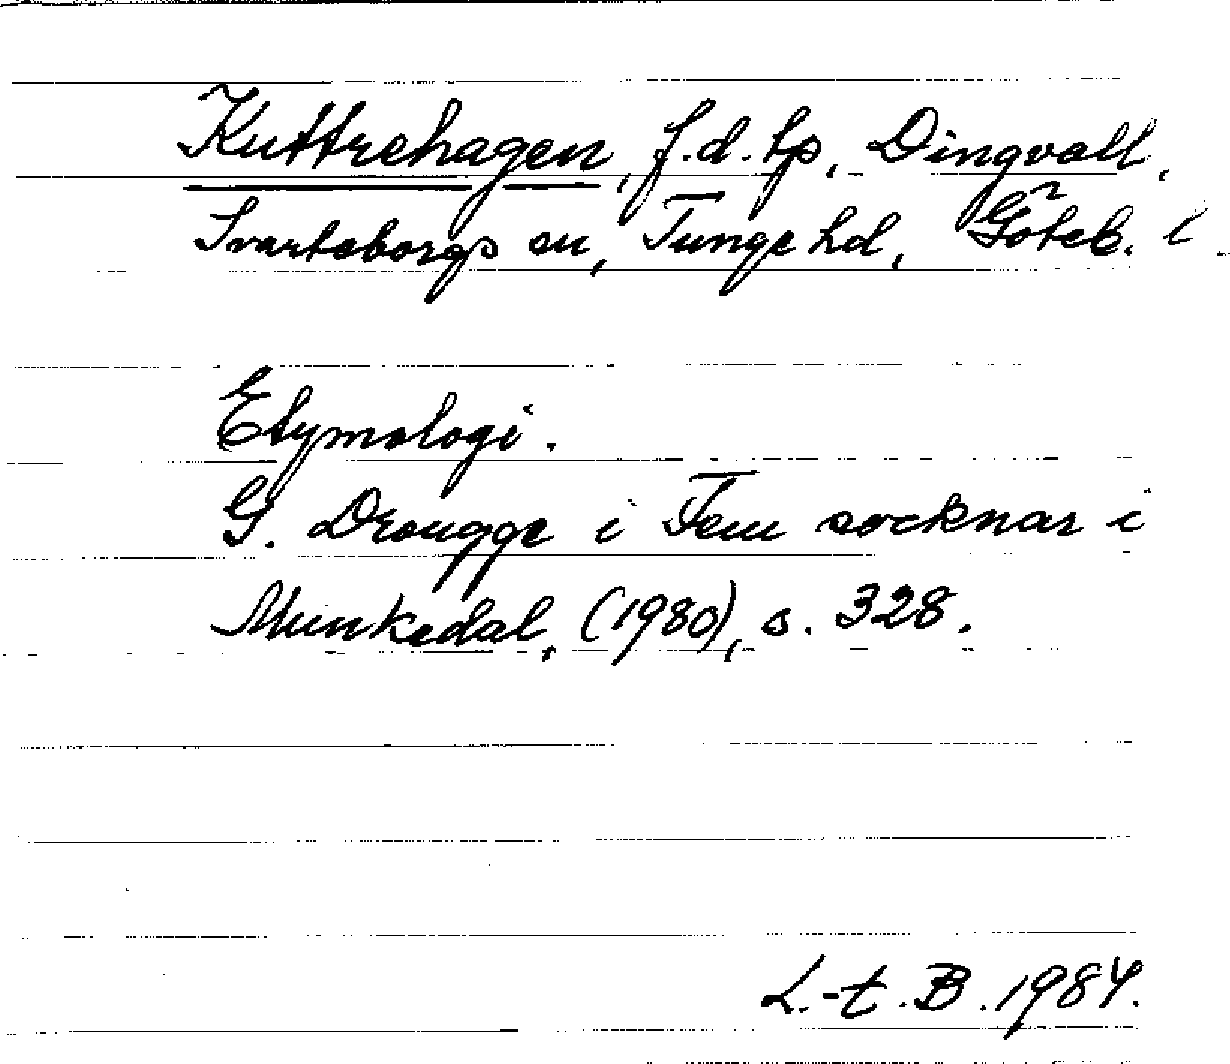 Kuttrehagen, f.d. tp, Dingvall,
Svarteborgs sn, Tunge hd, Göteb. l
Etymologi.
G. Drougge i Fem socknar i
Munkedal, (1980), s. 328.
L.-t. B. 1984.